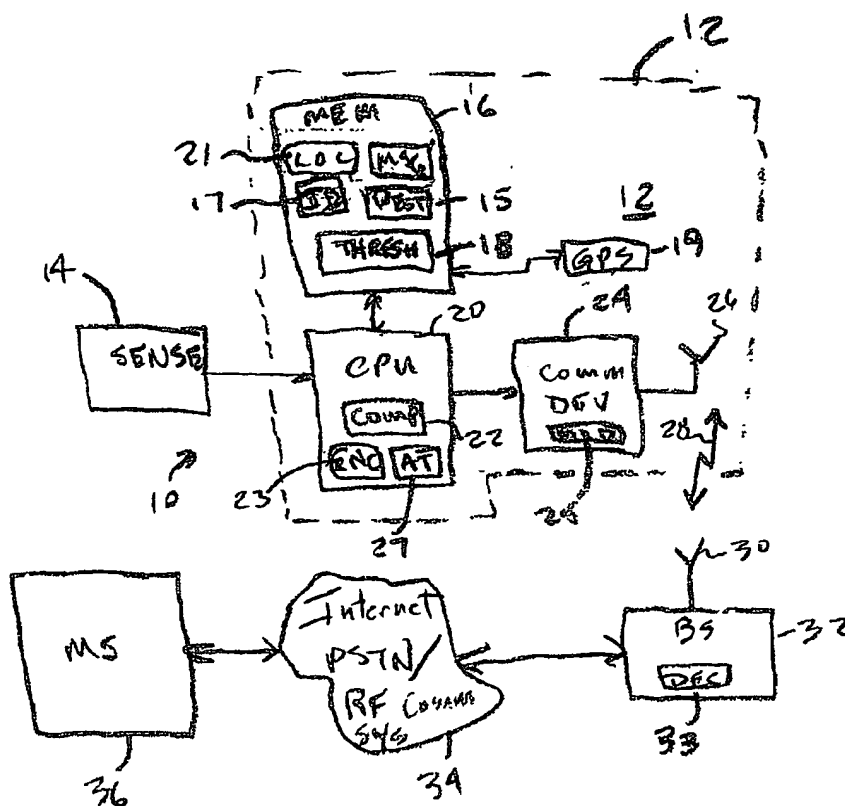 12
MEM
16
21
LOC
MSG
17
ID
DEST
15
THRESH
18
12
GPS
19
14
SENSE
20
CPU
COMP
22
ENC
AT
23
27
24
Comm
DEV
26
28
10
MS
36
Internet
PSTN/
RF Comm
Sys
34
30
BS
32
DEC
33